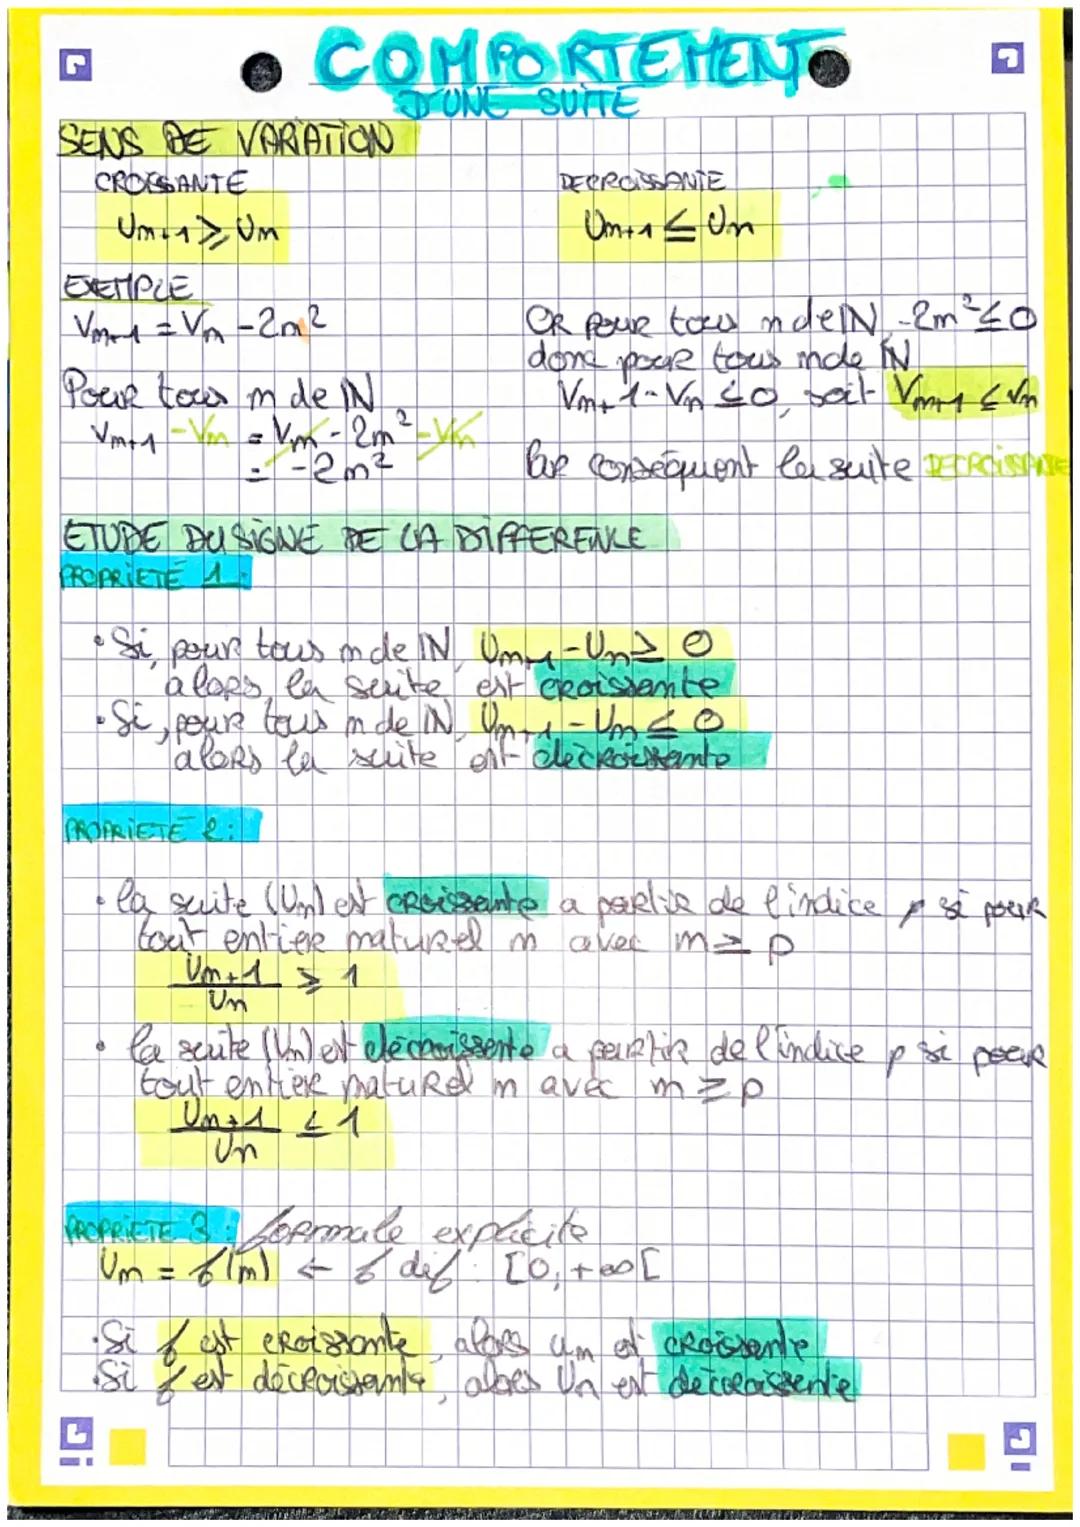 COMPORTEMENT
D'UNE SUITE
SENS DE VARIATION
CROISSANTE
Un+1 ≥ Un
DECROISSANTE
Un+1 ≤ Un
EXEMPLE
Vn+1 = Vn - 2n²
Pour tous n de IN
Vn+1 - Vn = Vn - 2n² - Vn
= -2n²
OR pour tous n de IN, -2n² ≤ 0
donc pour tous n de IN
Vn+1 - Vn ≤ 0, soit Vn+1 ≤ Vn
Par conséquent la suite DECROISSANTE
ETUDE DU SIGNE DE LA DIFFERENCE
PROPRIETE 1:
• Si, pour tous n de IN, Un+1 - Un ≥ 0
alors, la suite est croissante
• Si, pour tous n de IN, Un+1 - Un ≤ 0
alors la suite est décroissante
PROPRIETE 2:
• la suite (Un) est croissante a partir de l'indice p si pour
tout entier naturel n avec n ≥ p
Un+1 / Un ≥ 1
• la suite (Un) est décroissante a partir de l'indice p si pour
tout entier naturel n avec n ≥ p
Un+1 / Un ≤ 1
PROPRIETE 3: formule explicite
Un = f(n) ← f def: [0; +∞[
• Si f est croissante, alors un est croissante
• Si f est décroissante, alors Un est décroissante